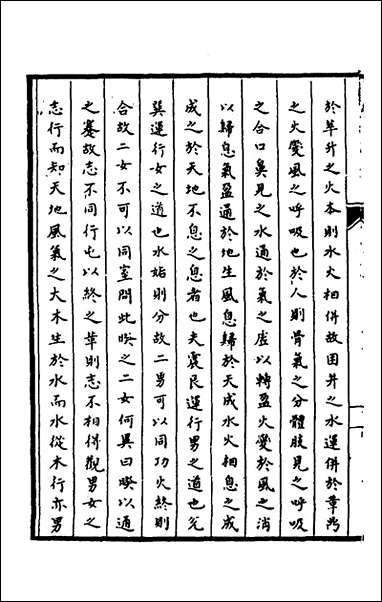 於革升之火本則水火相併故困井之水運併於革鼎
之火變風之呼吸也於人則骨氣之分體股見之呼吸
之合口鼻見之水通於氣之虛以轉盈火變於風之消
以歸息氣盈通於地生風息歸於天成水火相息之成
成之於天地不息之息者也夫震艮運行男之道也兌
巽運行女之道也水始則分故二男可以同功火終則
合故二女不可以同室問此暌之二女何異曰暌以通
之蹇故志不同行屯以終之革則志不相併觀男女之
志行而知天地風氣之大本生於水而水從木行亦男